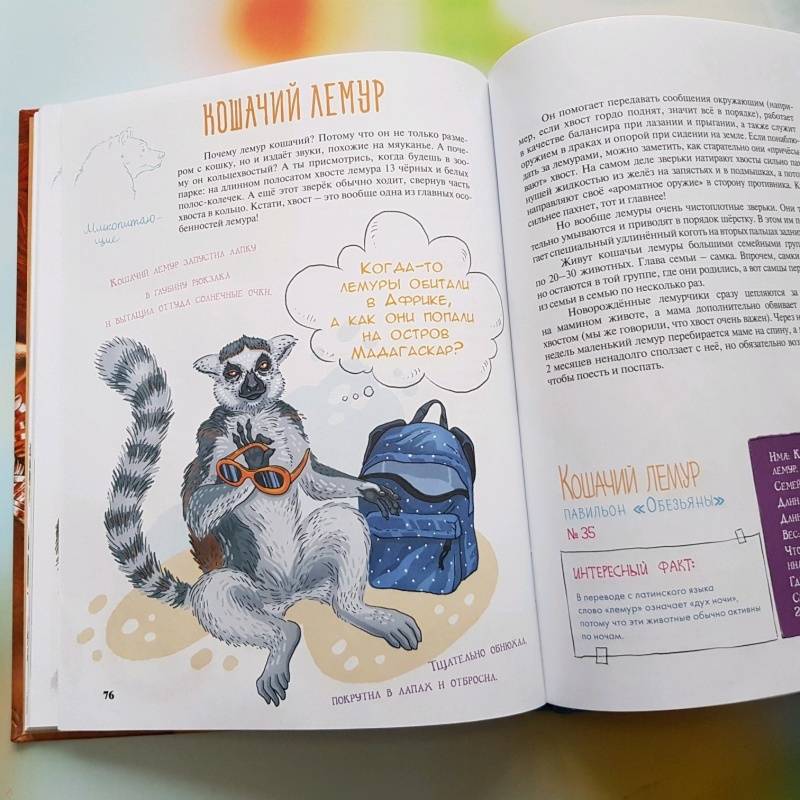 КОШАЧИЙ ЛЕМУР
Почему лемур кошачий? Потому что он не только разме-
ром с кошку, но и издаёт звуки, похожие на мяуканье. А поче-
му он кольцехвостый? А ты присмотрись, когда будешь в зоо-
парке: на длинном полосатом хвосте лемура 13 чёрных и белых
полос-колечек. А ещё этот зверёк обычно ходит, свернув часть
хвоста в кольцо. Кстати, хвост – это вообще одна из главных осо-
бенностей лемура!
Млекопитаю-
щие
Кошачий лемур запустил лапку
в глубину рюкзака
и вытащил оттуда солнечные очки.
Когда-то
лемуры обитали
в Африке,
а как они попали
на остров
Мадагаскар?
Тщательно обнюхал,
покрутил в лапах и отбросил.
76
Он помогает передавать сообщения окружающим (напри-
мер, если хвост гордо поднят, значит всё в порядке), работает
в качестве балансира при лазании и прыгании, а также служит
оружием в драках и опорой при сидении на земле. Если понаблю-
дать за лемурами, можно заметить, как старательно они «причёсы-
вают» хвост. На самом деле зверьки натирают хвосты сильно пах-
нущей жидкостью из желёз на запястьях и в подмышках, а пото
направляют своё «ароматное оружие» в сторону противника. К
сильнее пахнет, тот и главнее!
Но вообще лемуры очень чистоплотные зверьки. Они т
тельно умываются и приводят в порядок шёрстку. В этом им п
гает специальный удлинённый коготь на вторых пальцах задних
Живут кошачьи лемуры большими семейными груп
по 20–30 животных. Глава семьи – самка. Впрочем, самки
но остаются в той группе, где они родились, а вот самцы пере
из семьи в семью по несколько раз.
Новорождённые лемурчики сразу цепляются за
на мамином животе, а мама дополнительно обвивает
хвостом (мы же говорили, что хвост очень важен). Через н
недель маленький лемур перебирается маме на спину, а
2 месяцев ненадолго сползает с неё, но обязательно воз
чтобы поесть и поспать.
Кошачий лемур
павильон «Обезьяны»
№ 35
ИНТЕРЕСНЫЙ ФАКТ:
В переводе с латинского языка
слово «лемур» означает «дух ночи»,
потому что эти животные обычно активны
по ночам.
Имя: К
лемур,
Семе
Длин
Длин
Вес:
Что
ни
Гд
С
2